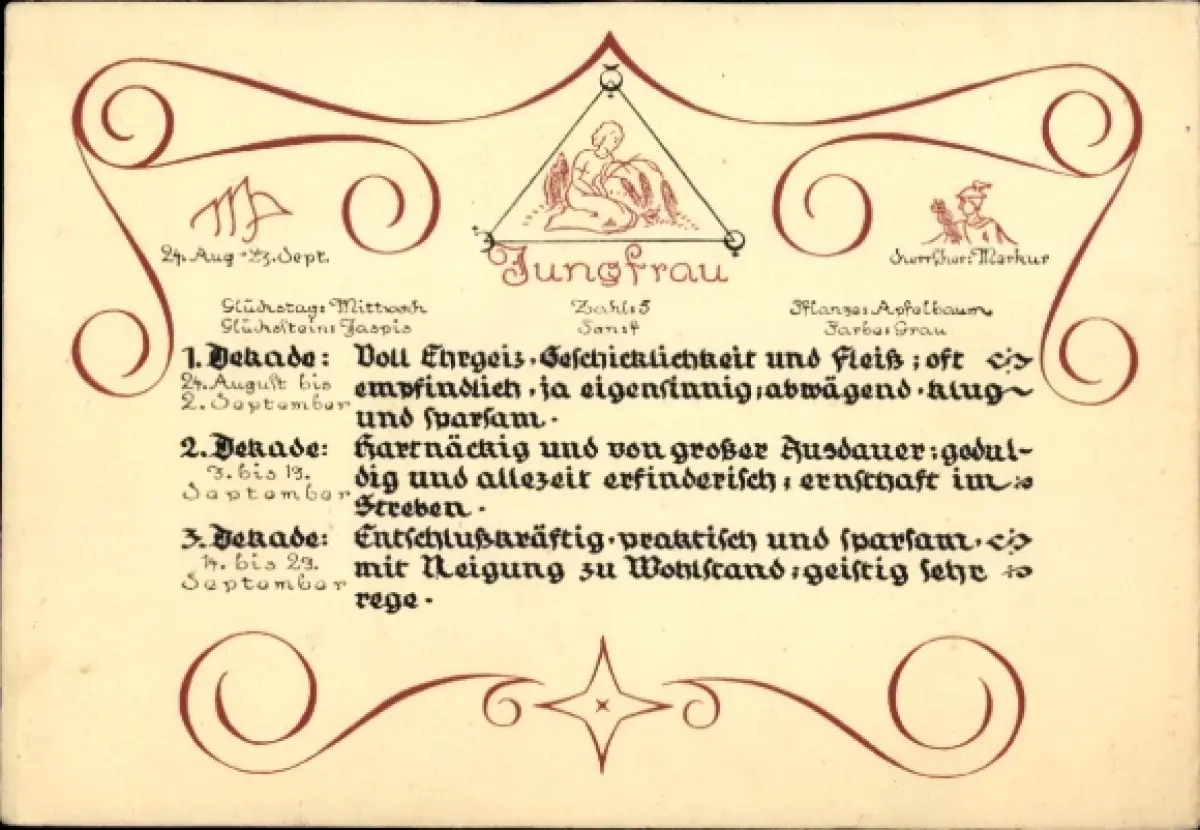 Jungfrau
24. Aug - 23. Sept.
Herrscher: Merkur
Glückstag: Mittwoch
Zahl: 5
Pflanze: Apfelbaum
Glückstein: Jaspis
Farbe: Grau
1. Dekade: Voll Ehrgeiz, Geschicklichkeit und Fleiß; oft
24. August bis empfindlich, ja eigensinnig; abwägend, klug
2. September und sparsam.
2. Dekade: Hartnäckig und von großer Ausdauer; gedul-
3. bis 13. dig und allezeit erfinderisch; ernsthaft im
September Streben.
3. Dekade: Entschlußkräftig, praktisch und sparsam,
14. bis 23. mit Neigung zu Wohlstand; geistig sehr
September rege.